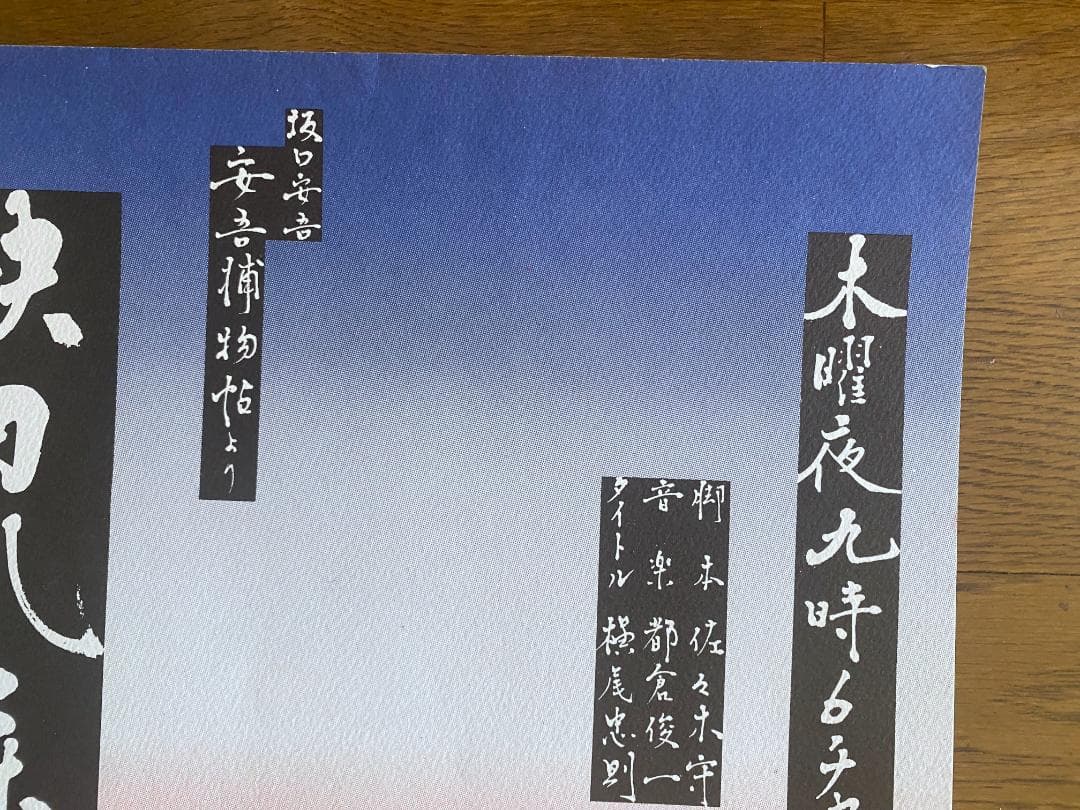 木曜夜九時6チャ
脚本 佐々木守
音楽 都倉俊一
タイトル 横尾忠則
坂口安吾
安吾捕物帖より
快刀乱麻